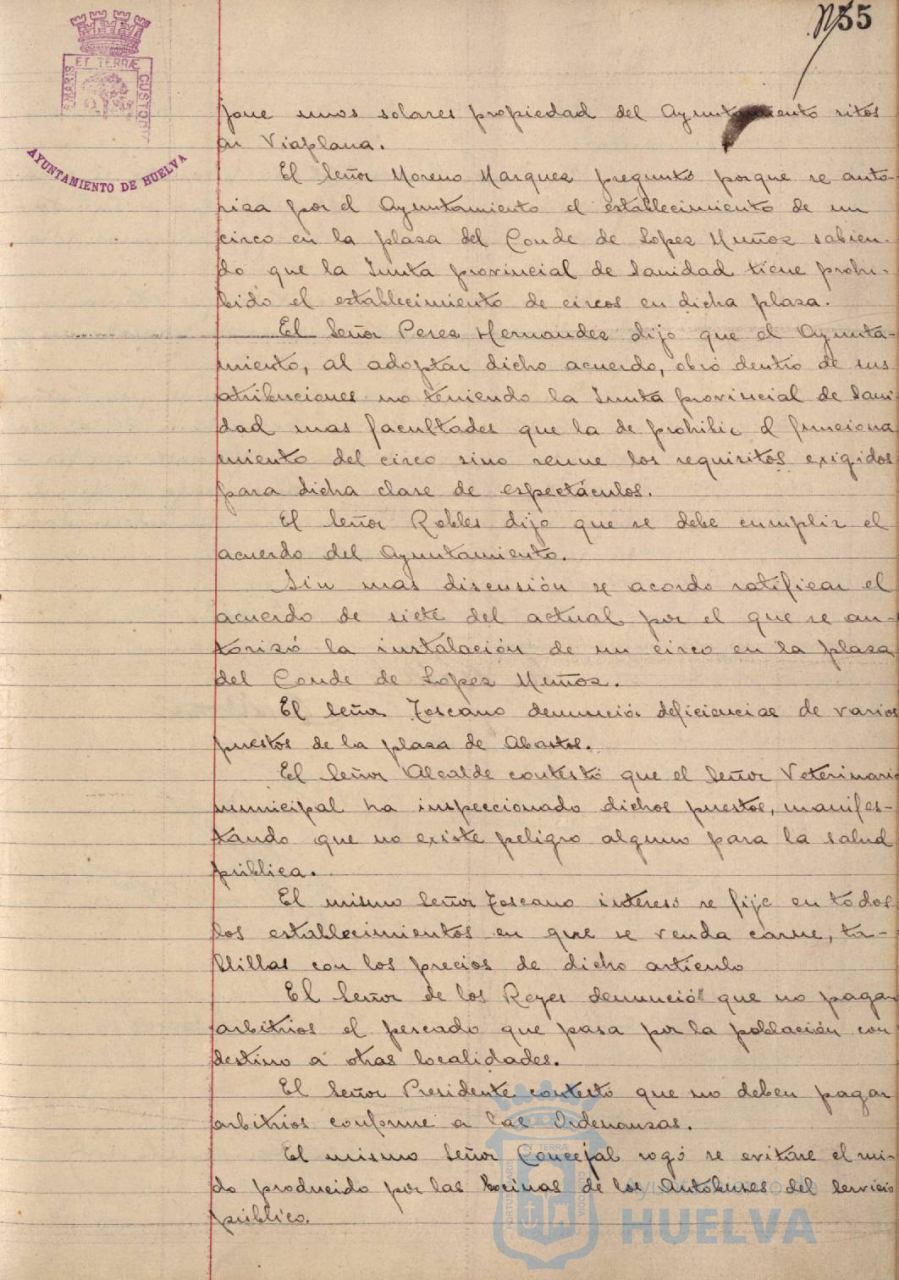 55
EMARIS ET TERRÆ CUSTODIT
AYUNTAMIENTO DE HUELVA
que unos solares propiedad del Ayuntamiento sitos
en Viaplana.
El Señor Moreno Marquez preguntó porque se auto-
riza por el Ayuntamiento el establecimiento de un
circo en la plaza del Conde de Lopez Muñoz sabien-
do que la Junta provincial de Sanidad tiene prohi-
bido el establecimiento de circos en dicha plaza.
El Señor Perez Hernandez dijo que el Ayunta-
miento, al adoptar dicho acuerdo, obró dentro de sus
atribuciones no teniendo la Junta provincial de Sani
dad mas facultades que la de prohibir el funciona
miento del circo sino reune los requisitos exigidos
para dicha clase de espectáculos.
El Señor Robles dijo que se debe cumplir el
acuerdo del Ayuntamiento.
Sin mas discusión se acordo ratificar el
acuerdo de siete del actual por el que se au-
torizó la instalación de un circo en la plaza
del Conde de Lopez Muñoz.
El Señor Toscano denunció deficiencias de varios
puestos de la plaza de Abastos.
El Señor Alcalde contestó que el Señor Veterinario
municipal ha inspeccionado dichos puestos, manifes-
tando que no existe peligro alguno para la salud
pública.
El mismo Señor Toscano intereso se fije en todos
los establecimientos en que se venda carne, ta-
blillas con los precios de dicho articulo
El Señor de los Reyes denunció que no pagan
arbitrios el pescado que pasa por la población con
destino a otras localidades.
El Señor Presidente contesto que no deben pagar
arbitrios conforme a las Ordenanzas.
El mismo Señor Concejal rogó se evitáre el rui-
do producido por las bocinas de los Autobuses del servicio
público.
Ayuntamiento de
HUELVA